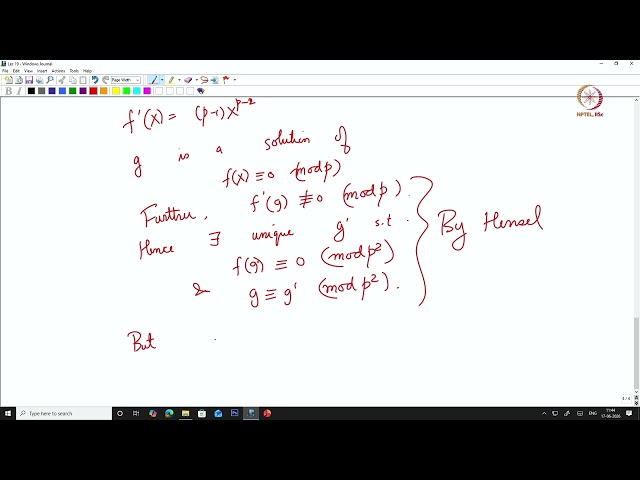 Lec 19 - Windows Journal
File Edit View Insert Actions Tools Help
Page Width
NPTEL, IISc
f'(x) = (p-1)x^{p-2}
g is a solution of
f(x) ≡ 0 (mod p)
Further, f'(g) ≢ 0 (mod p).
Hence ∃ unique g' s.t.
f(g) ≡ 0 (mod p²)
& g ≡ g' (mod p²).
} By Hensel
But
4 / 4
Type here to search
ENG
11:44
17-06-2026